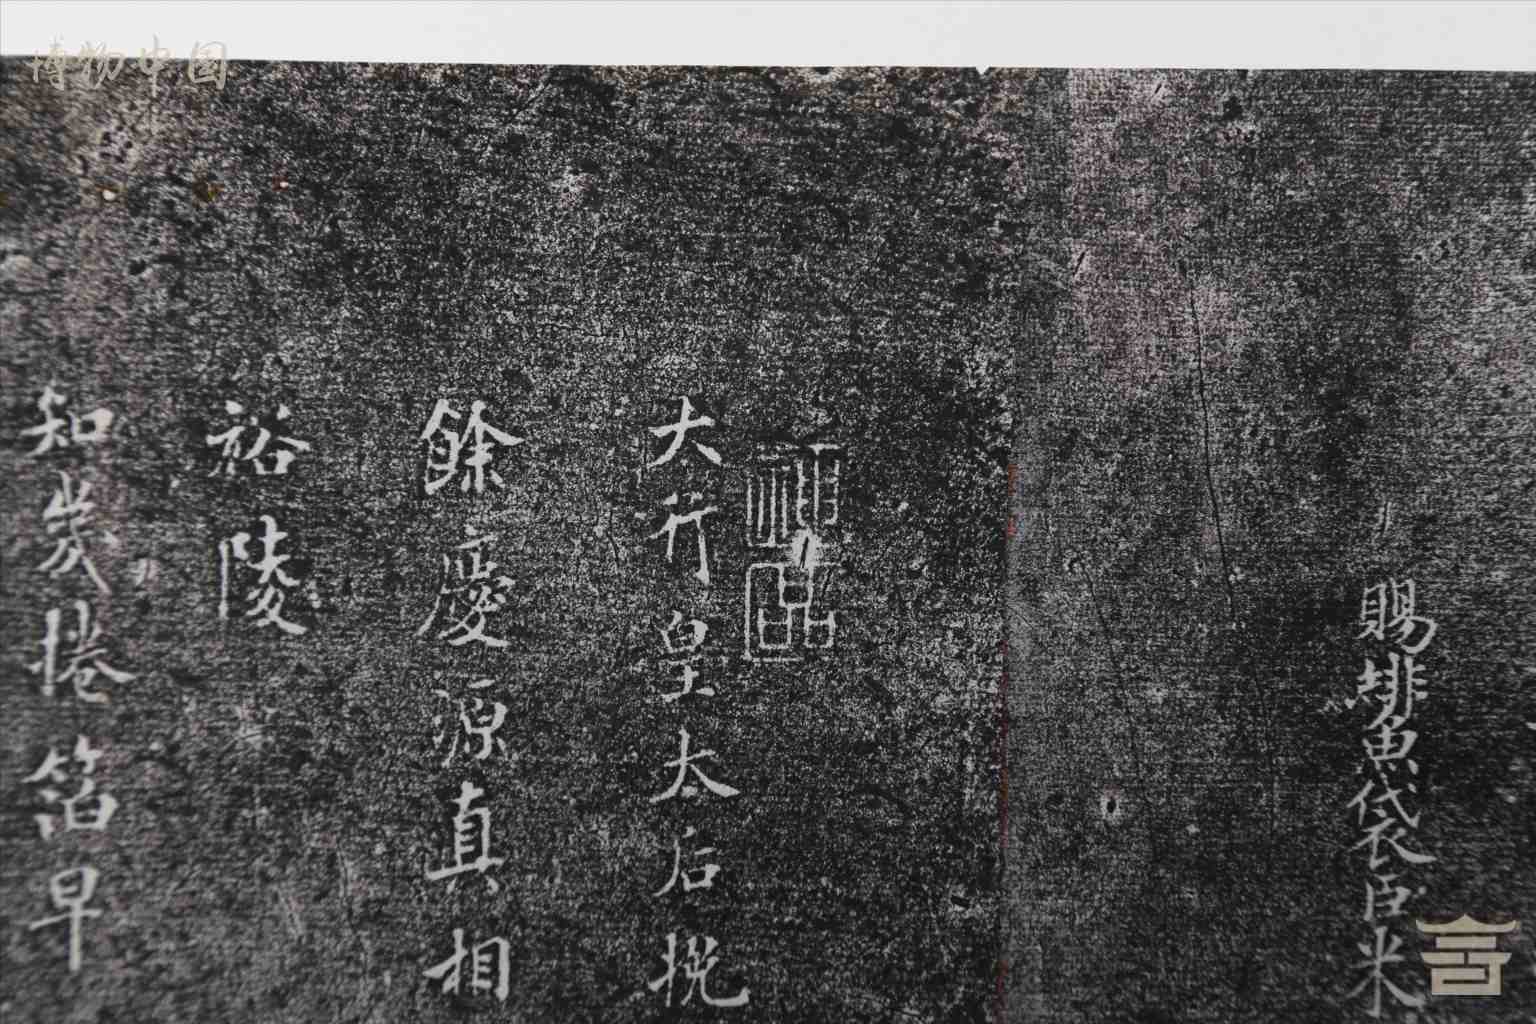 博物中国
賜緋魚袋臣米
神品
大行皇太后挽
餘慶源真相
裕陵
知歲捲箔早